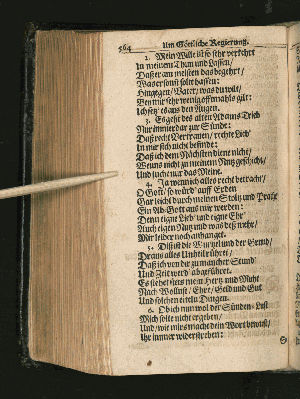 564 Um Göttliche Regierung.
2. Mein Wille ist so sehr verkehrt
In meinem Thun und Lassen/
Daß er am meisten das begehrt/
Was er sonst solte hassen:
Hingegen/Vater/was du wilt/
Bey mir sehr wenig offtmahls gilt:
Ich setz es aus den Augen.
3. Es geht des alten Adams Tück
Nur immerdar zur Sünde:
Daß recht Vertrauen/rechte Lieb'
In mir sich nicht befinde:
Daß ich dem Nächsten diene nicht/
Wo uns nicht zu meinem Nutz geschicht/
Und suche nur das Meine.
4. Ja wenn ich alles recht betracht/
O Gott/ so wird' auff Erden
Gar leicht durch meinen Stoltz und Pracht
Ein Ab-Gott aus mir werden:
Denn eigne Lieb' und eigne Ehr'
Auch eigen Nutz und was deß mehr/
Mir leider noch anhanget.
5. Diß ist die Wurtzel und der Grund/
Draus alles Unheil rühret/
Daß ich von dir zu mancher Stund'
Und Zeit werd' abgeführet.
Es stehet stets mein Hertz und Muht
Nach Wollust/ Ehre/ Geld und Gut
Und solchen eiteln Dingen.
6. Ob ich nun wol der Sünden-Lust
Mich solte nicht ergeben/
Und/wie mirs macht dein Wort bewust/
Ihr immer widerstreben: